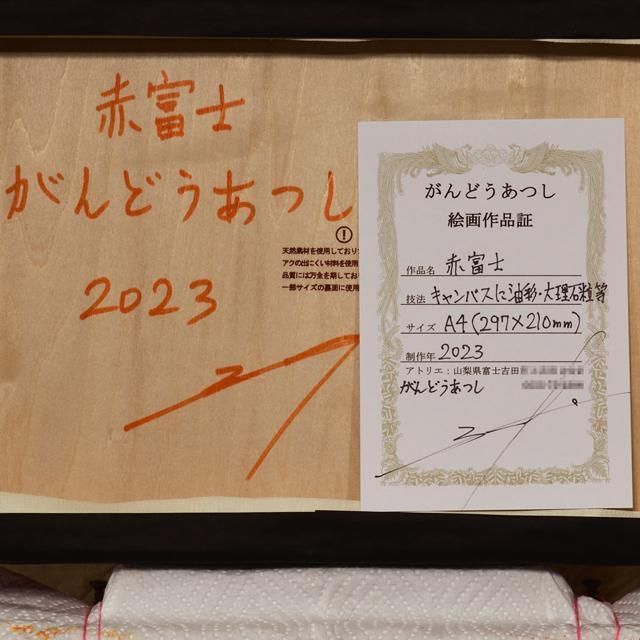 赤富士
がんどうあつし
2023
天然素材を使用しており
アクの出にくい材料を使用
品質には万全を期してお
一部サイズの裏面に使用
がんどうあつし
絵画作品証
作品名 赤富士
技法 キャンバスに油彩・大理石粒等
サイズ A4(297×210mm)
制作年 2023
アトリエ：山梨県富士吉田
がんどうあつし